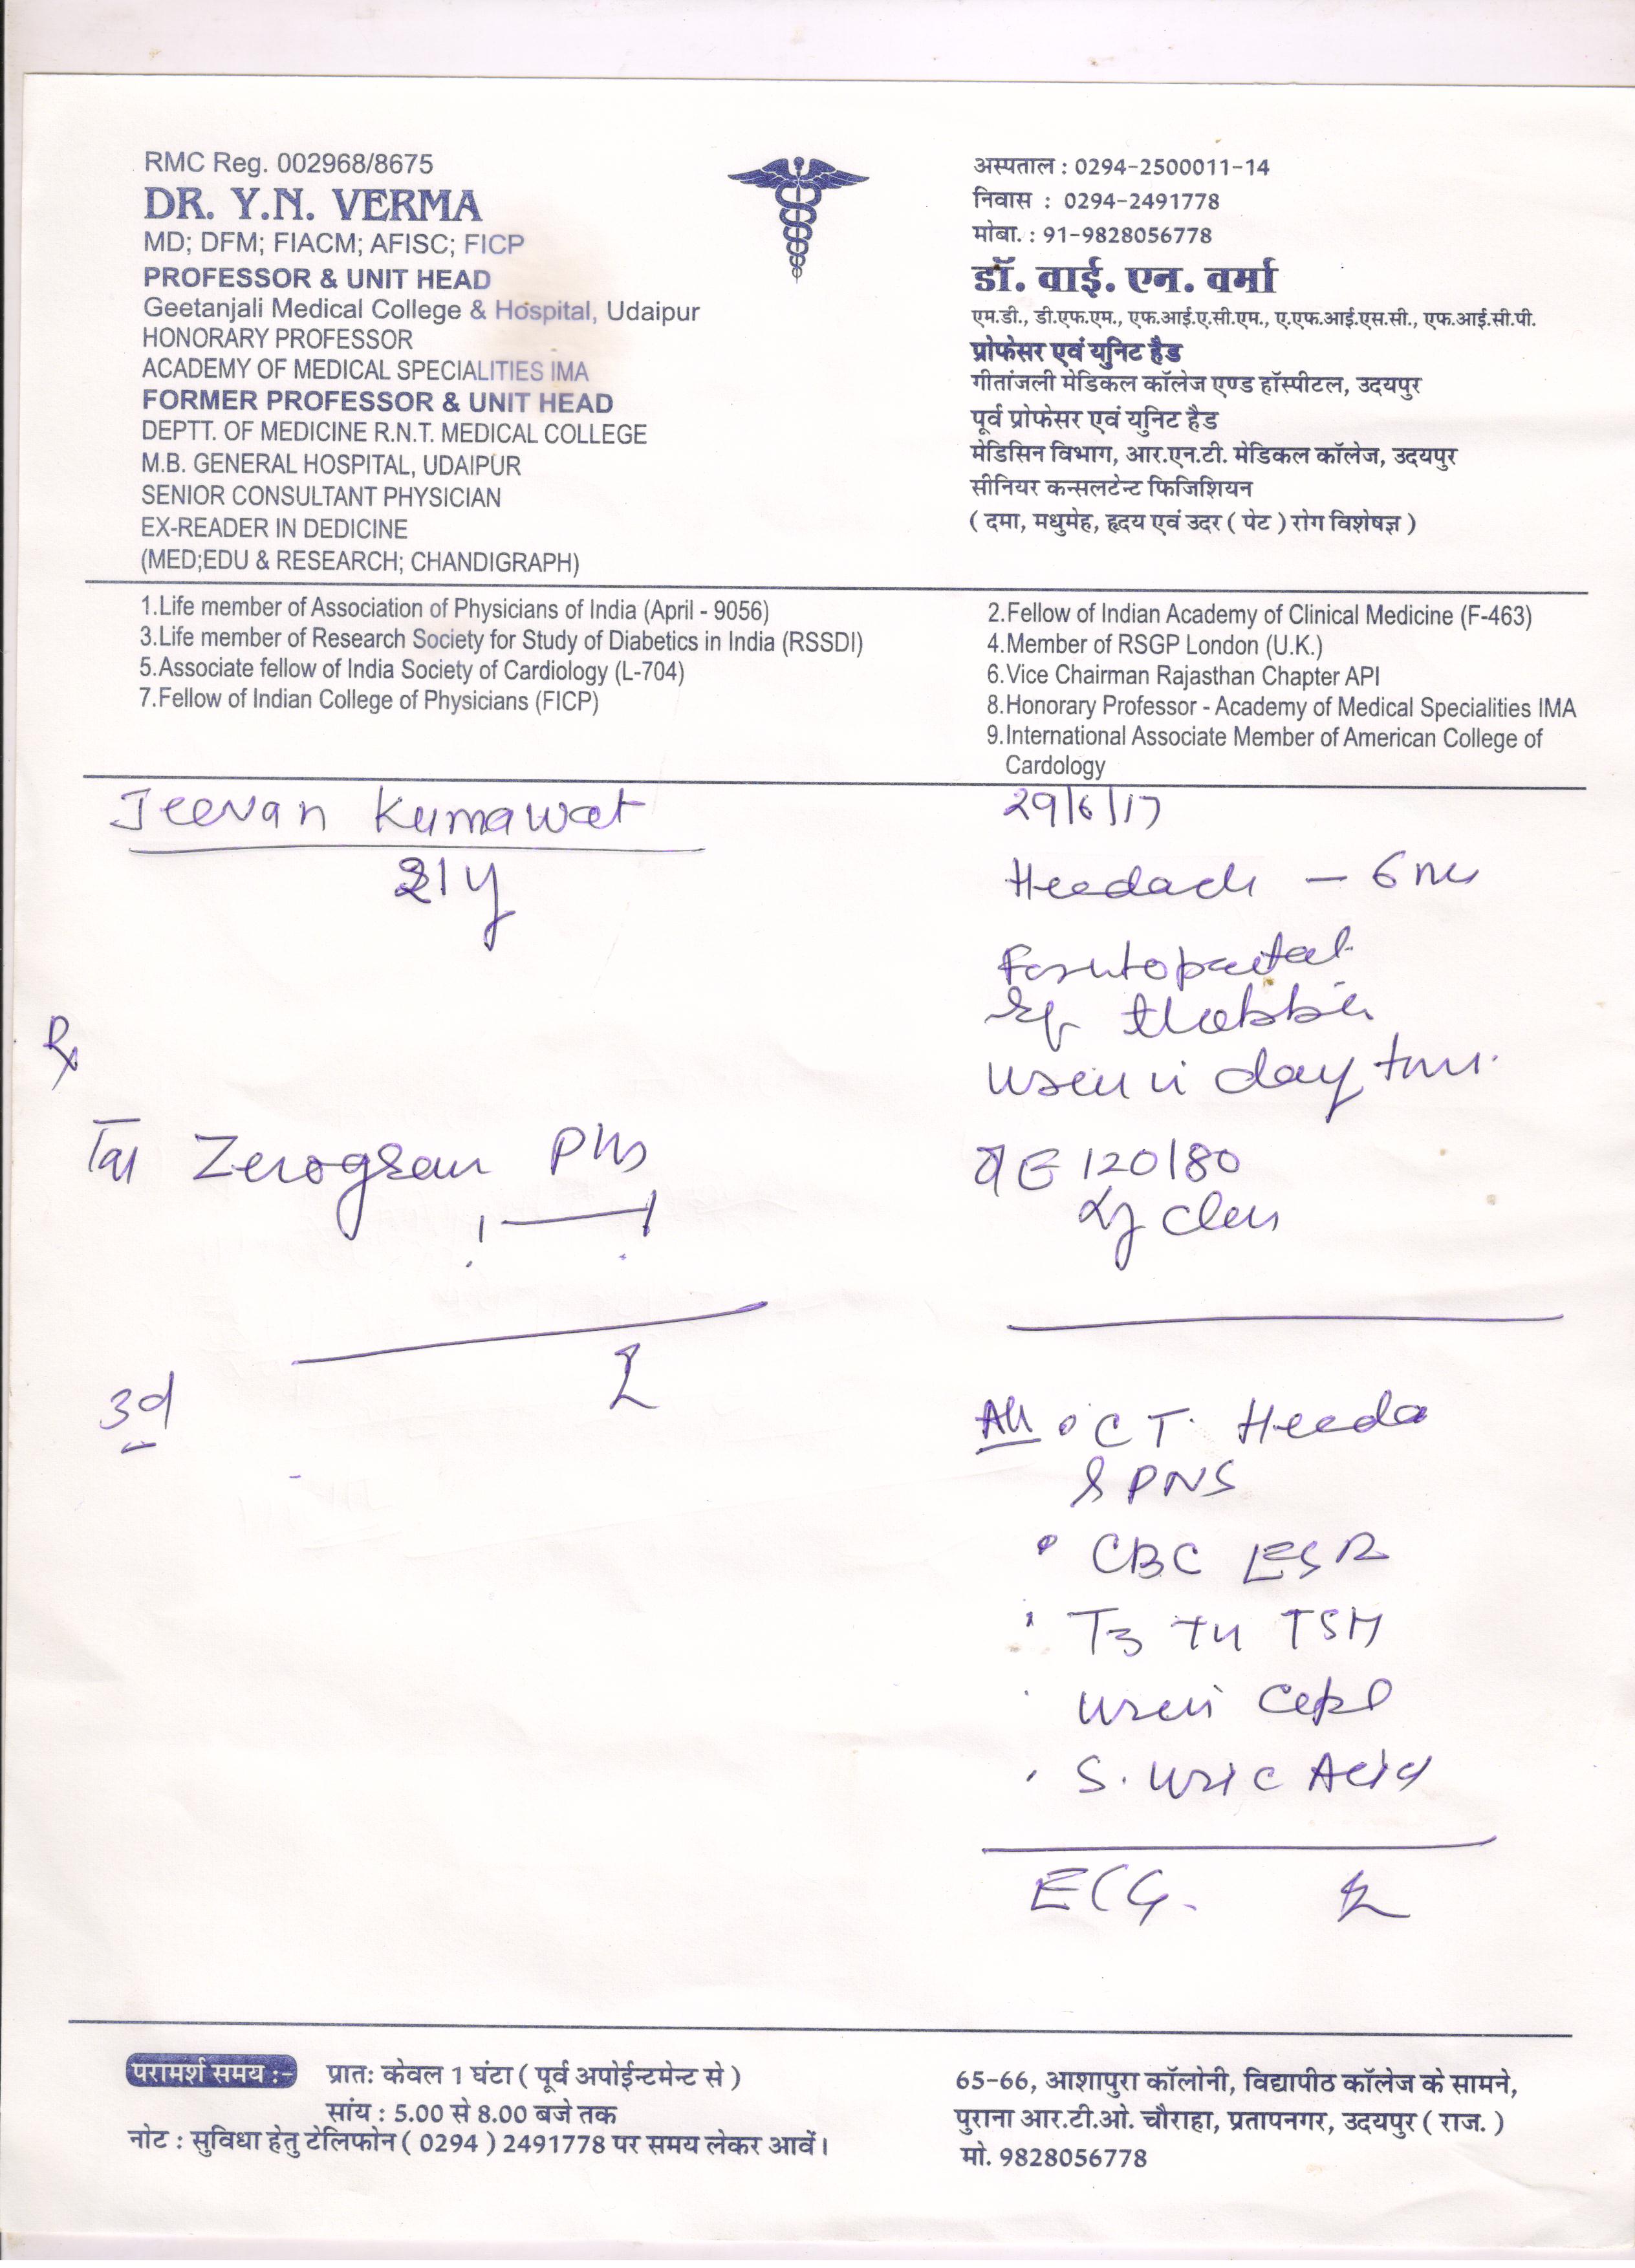 RMC Reg. 002968/8675
DR. Y.N. VERMA
MD; DFM; FIACM; AFISC; FICP
PROFESSOR & UNIT HEAD
Geetanjali Medical College & Hospital, Udaipur
HONORARY PROFESSOR
ACADEMY OF MEDICAL SPECIALITIES IMA
FORMER PROFESSOR & UNIT HEAD
DEPTT. OF MEDICINE R.N.T. MEDICAL COLLEGE
M.B. GENERAL HOSPITAL, UDAIPUR
SENIOR CONSULTANT PHYSICIAN
EX-READER IN DEDICINE
(MED;EDU & RESEARCH; CHANDIGRAPH)
अस्पताल : 0294-2500011-14
निवास : 0294-2491778
मोबा. : 91-9828056778
डॉ. वाई. एन. वर्मा
एम.डी., डी.एफ.एम., एफ.आई.ए.सी.एम., ए.एफ.आई.एस.सी., एफ.आई.सी.पी.
प्रोफेसर एवं युनिट हैड
गीतांजली मेडिकल कॉलेज एण्ड हॉस्पीटल, उदयपुर
पूर्व प्रोफेसर एवं युनिट हैड
मेडिसिन विभाग, आर.एन.टी. मेडिकल कॉलेज, उदयपुर
सीनियर कन्सलटेन्ट फिजिशियन
( दमा, मधुमेह, हृदय एवं उदर ( पेट ) रोग विशेषज्ञ )
1.Life member of Association of Physicians of India (April - 9056)
2.Fellow of Indian Academy of Clinical Medicine (F-463)
3.Life member of Research Society for Study of Diabetics in India (RSSDI)
4.Member of RSGP London (U.K.)
5.Associate fellow of India Society of Cardiology (L-704)
6.Vice Chairman Rajasthan Chapter API
7.Fellow of Indian College of Physicians (FICP)
8.Honorary Professor - Academy of Medical Specialities IMA
9.International Associate Member of American College of
Cardology
Jeevan Kumawat
29/6/17
Headach - 6
day time.
120/80
Rx
Zerograin Plus
3d
CT Head
& PNS
CBC ESR
T3 T4 TSH
S. Uric Acid
ECG.
परामर्श समय :-
प्रातः केवल 1 घंटा ( पूर्व अपोईन्टमेन्ट से )
सांय : 5.00 से 8.00 बजे तक
नोट : सुविधा हेतु टेलिफोन ( 0294 ) 2491778 पर समय लेकर आवें।
65-66, आशापुरा कॉलोनी, विद्यापीठ कॉलेज के सामने,
पुराना आर.टी.ओ. चौराहा, प्रतापनगर, उदयपुर ( राज. )
मो. 9828056778